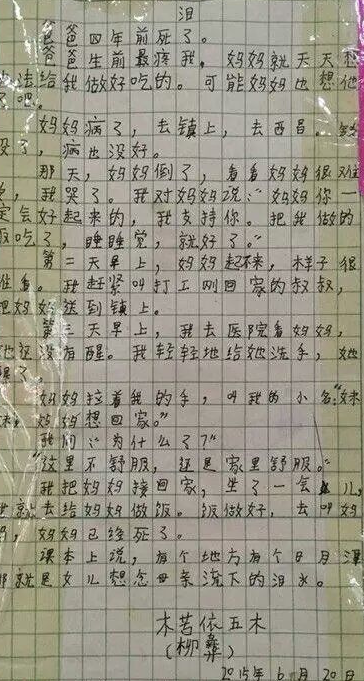 泪
爸爸四年前死了。
爸爸生前最疼我，妈妈就天天想
办法给我做好吃的。可能妈妈也想他
了吧。
妈妈病了，去镇上，去西昌。钱
没了，病也没好。
那天，妈妈倒了，看看妈妈很难
我哭了。我对妈妈说：“妈妈你一
定会好起来的，我支持你。把我做的
饭吃了，睡睡觉，就好了。”
第二天早上，妈妈起不来，样子很
难看。我赶紧叫打工刚回家的叔叔，
把妈妈送到镇上。
第三天早上，我去医院看妈妈，
她还没有醒。我轻轻地给她洗手，她
醒了。
妈妈拉着我的手，叫我的小名：“妹
妹，妈妈想回家。”
我问：“为什么了？”
“这里不舒服，还是家里舒服。”
我把妈妈接回家，坐了一会儿，
我就去给妈妈做饭。饭做好，去叫妈
妈，妈妈已经死了。
课本上说，有个地方有个日月潭，
那就是女儿想念母亲流下的泪水。
木苦依五木
（柳彝）
2015年6月20日